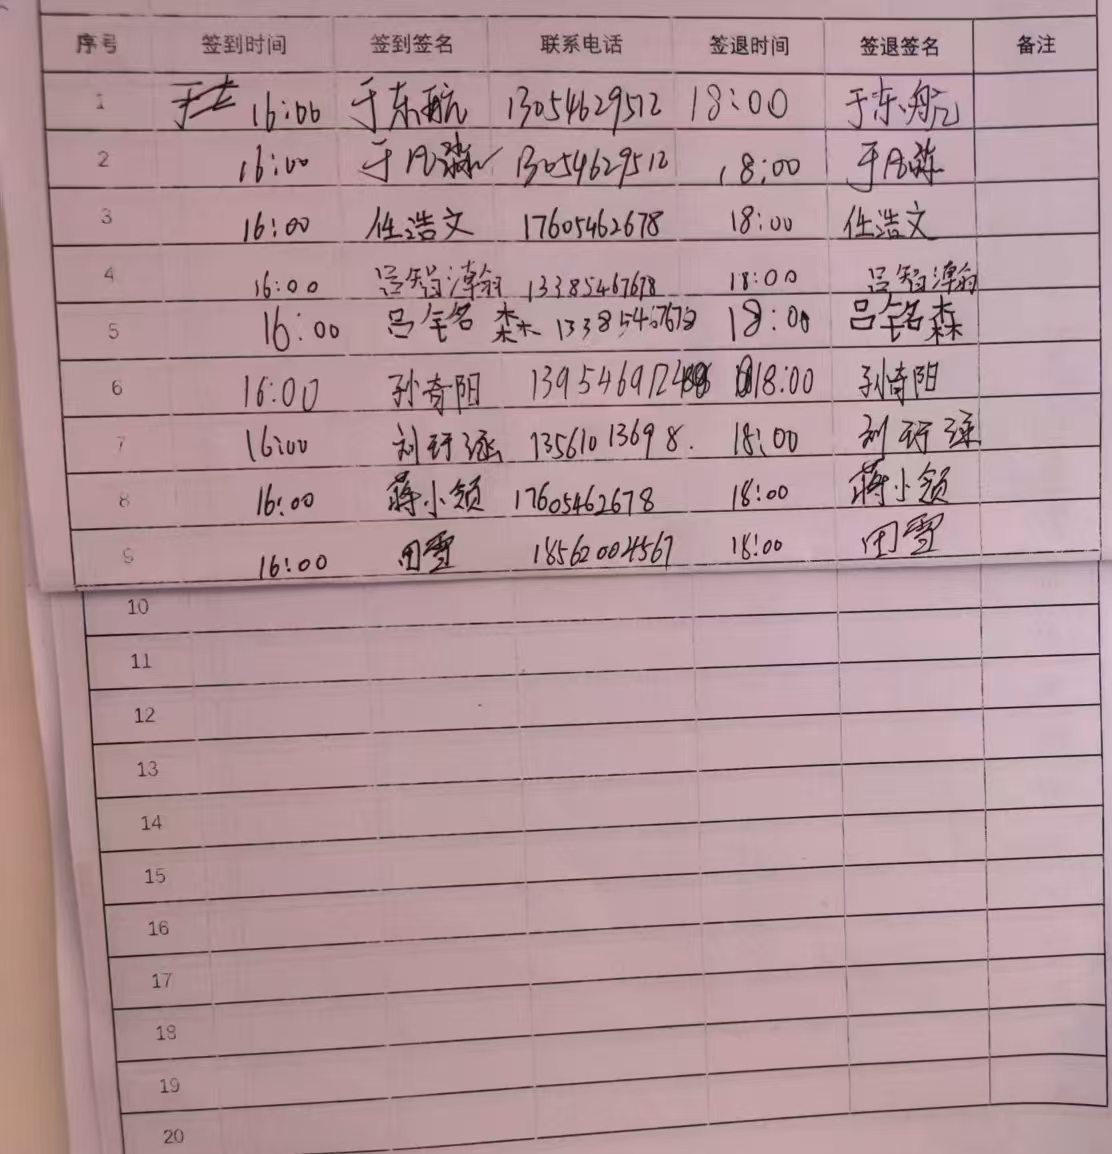 序号 签到时间 签到签名 联系电话 签退时间 签退签名 备注
1 16:00 于东航 13054629512 18:00 于东航
2 16:00 于凡淼 13054629512 18:00 于凡
3 16:00 任浩文 17605462678 18:00 任浩文
4 16:00 吕智瀚 13385467678 18:00 吕智瀚
5 16:00 吕名森 13385467678 18:00 吕名森
6 16:00 孙奇阳 18:00 孙奇阳
7 16:00 刘 13561013698. 18:00 刘
8 16:00 蒋小领 17605462678 18:00 蒋小领
9 16:00 田雪 18562004567 18:00 田雪
10
11
12
13
14
15
16
17
18
19
20